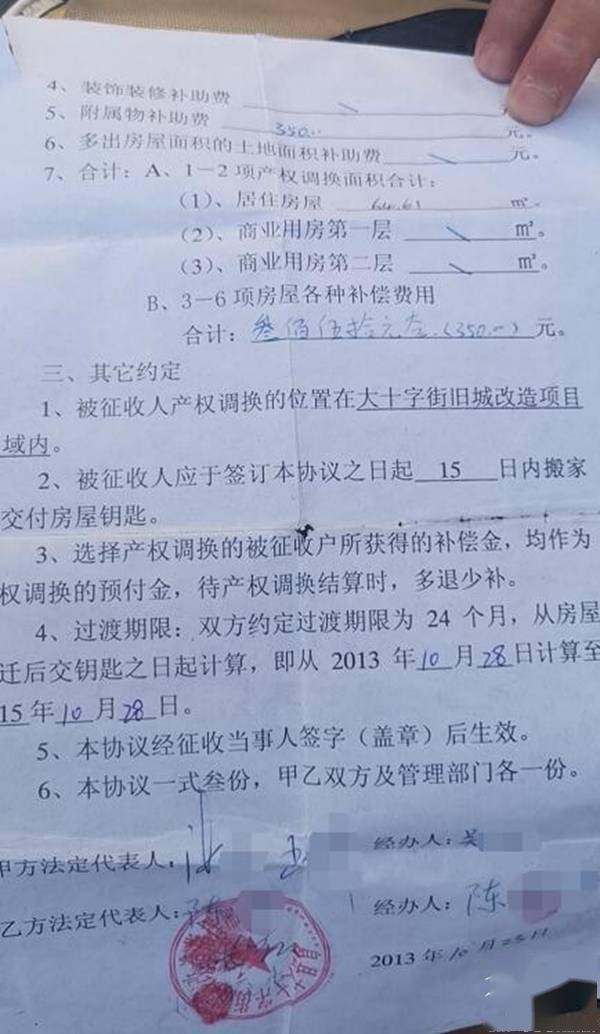 4、装饰装修补助费
5、附属物补助费 350.. 元。
6、多出房屋面积的土地面积补助费 元。
7、合计：A、1－2项产权调换面积合计：
(1)、居住房屋 64.61 m²。
(2)、商业用房第一层 m²。
(3)、商业用房第二层 m²。
B、3－6项房屋各种补偿费用
合计：叁佰伍拾元 (350..) 元。
三、其它约定
1、被征收人产权调换的位置在大十字街旧城改造项目
域内。
2、被征收人应于签订本协议之日起 15 日内搬家
交付房屋钥匙。
3、选择产权调换的被征收户所获得的补偿金，均作为
权调换的预付金，待产权调换结算时，多退少补。
4、过渡期限：双方约定过渡期限为 24 个月，从房屋
迁后交钥匙之日起计算，即从 2013 年10月28日计算至
15年10月28日。
5、本协议经征收当事人签字（盖章）后生效。
6、本协议一式叁份，甲乙双方及管理部门各一份。
甲方法定代表人： 经办人：吴
乙方法定代表人：陈 经办人：陈
2013 年10月 日